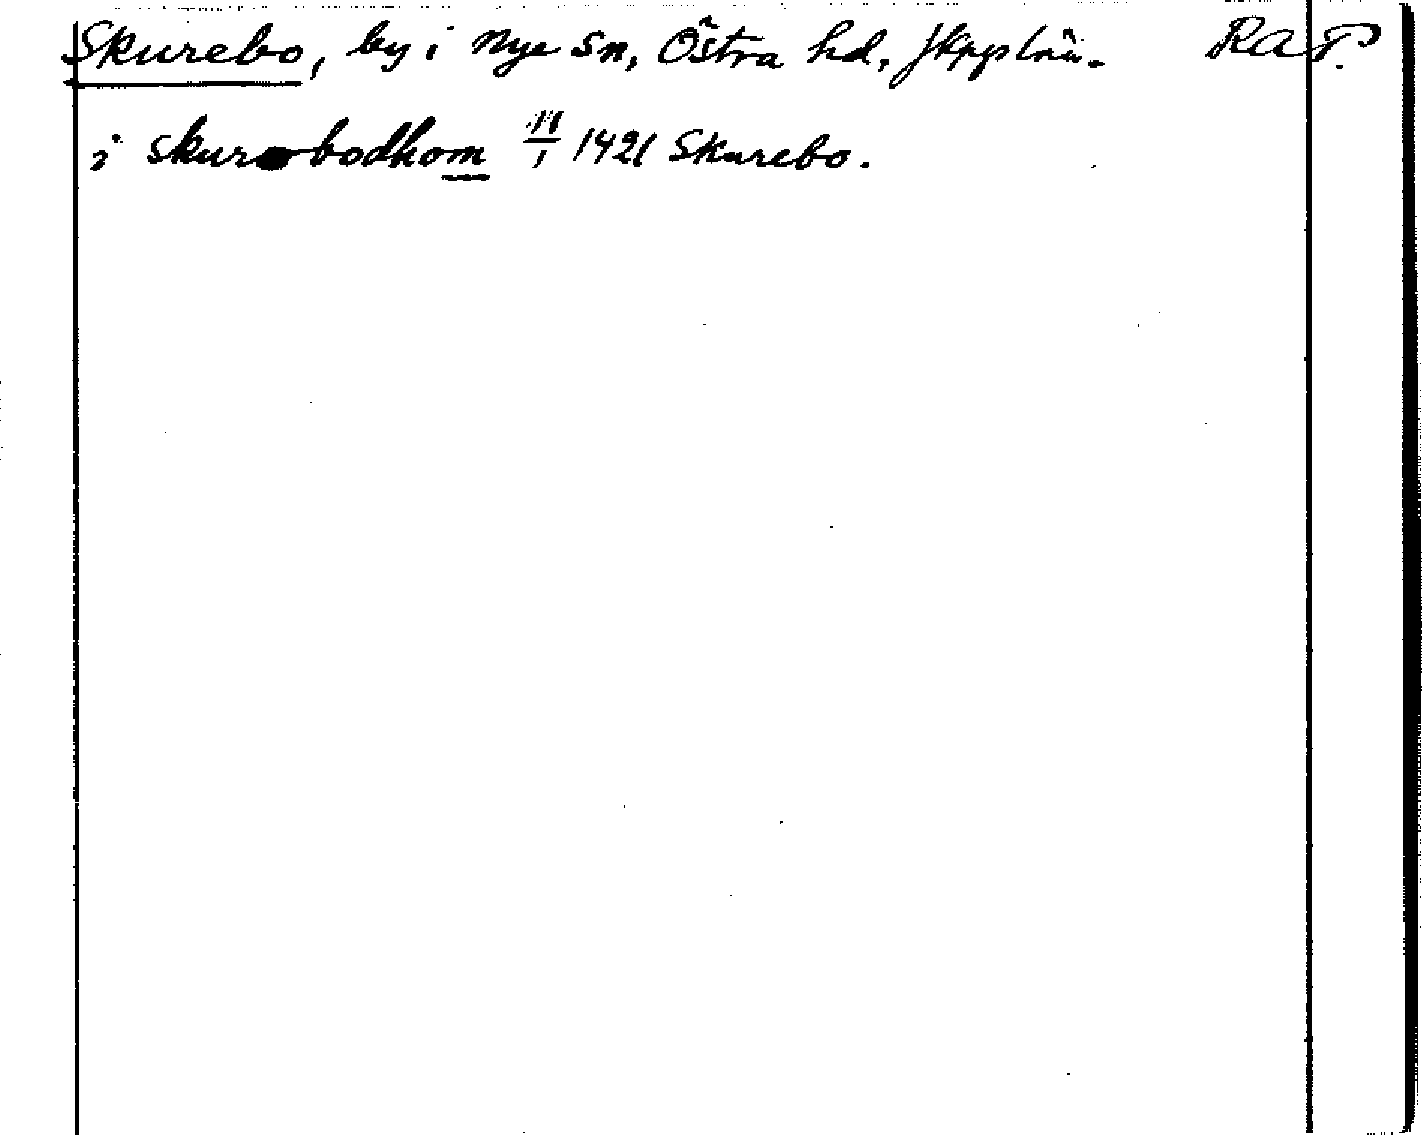 Skurebo, by i Nye sn, Östra hd, Jkpgs län. RAP.
i skurobodhom 11/1 1421 Skurebo.